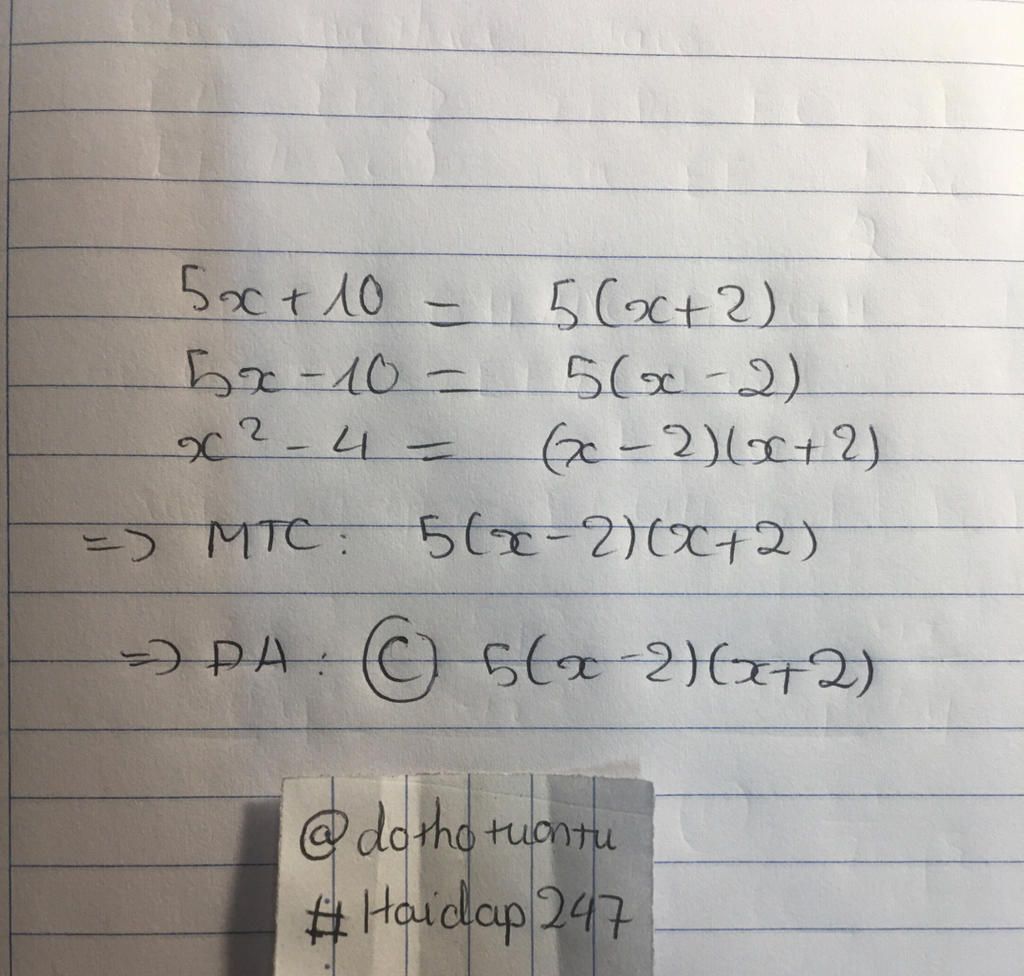 5x + 10 = 5(x+2)
5x - 10 = 5(x - 2)
x² - 4 = (x - 2)(x+2)
=> MTC: 5(x-2)(x+2)
=> DA: Ⓒ 5(x-2)(x+2)
@dothotuantu
#Haidap247